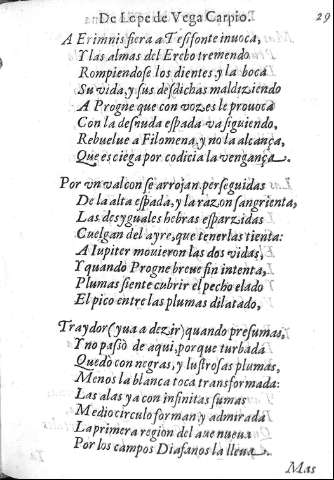 De Lope de Vega Carpio. 29
A Erimnis fiera a Tesifonte inuoca,
Y las almas del Erebo tremendo
Rompiendose los dientes y la boca
Su vida, y sus desdichas maldiziendo
A Progne que con vozes le prouoca
Con la desnuda espada va siguiendo,
Rebuelue a Filomena, y no la alcança,
Que es ciega por codicia la vengança.
Por vn valcon se arrojan perseguidas
De la alta espada, y la razon sangrienta,
Las desyguales hebras esparzidas
Cuelgan del ayre, que tenerlas tienta:
A Iupiter mouieron las dos vidas,
Y quando Progne breue fin intenta,
Plumas siente cubrir el pecho elado
El pico entre las plumas dilatado,
Traydor (yua a dezir) quando presumas,
Y no passò de aqui, porque turbada
Quedò con negras, y lustrosas plumas,
Menos la blanca toca transformada:
Las alas ya con infinitas sumas
Medio circulo forman, y admirada
La primera region del aue nueua
Por los campos Diafanos la lleua.
Mas